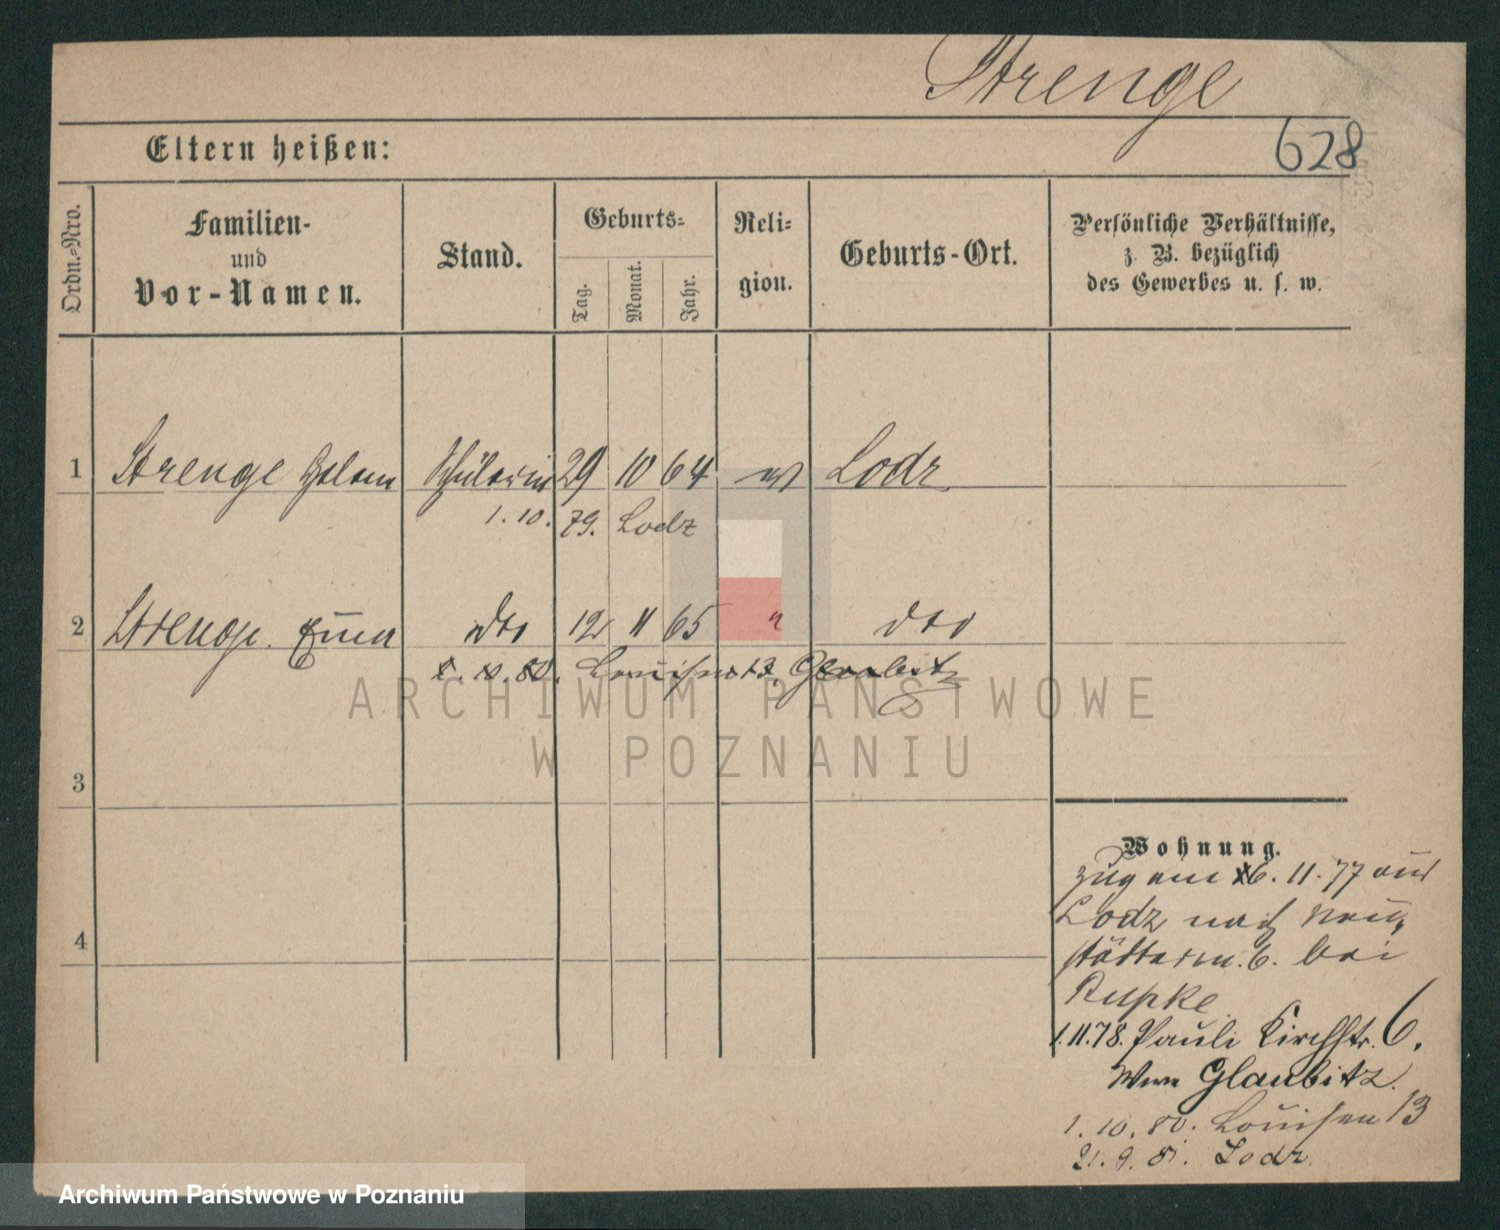 Strenge
628
Eltern heißen:
Ordn.-Nro.
Familien- und Vor-Namen.
Stand.
Geburts-
Tag.
Monat.
Jahr.
Religion.
Geburts-Ort.
Persönliche Verhältnisse,
z. B. bezüglich
des Gewerbes u. s. w.
1 Strenge Schülerin 29 10 64 ev Lodz
1. 10. 79. Lodz
2 Strenge Emma dto 12 11 65 " dto
10. 80. Louisenstr. 13. Glaubitz
ARCHIWUM PAŃSTWOWE
W POZNANIU
3
4
Wohnung.
Zug am 6. 11. 77 aus
Lodz nach Neu-
städterm. 6. bei
Rupke
1.11.78. Pauli Kirchstr. 6.
Wwe Glaubitz.
1. 10. 80. Louisen 13
21. 9. 81. Lodz
Archiwum Państwowe w Poznaniu